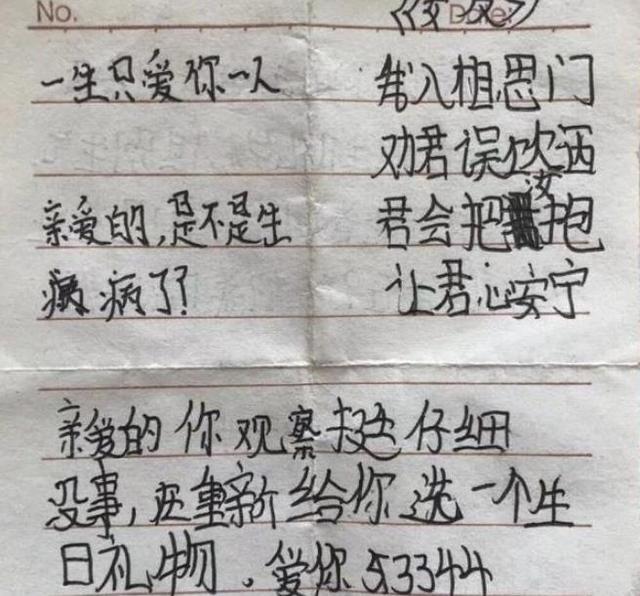 No. Date:
一生只爱你一人
亲爱的,是不是生
病了?
入相思门
劝君误饮酒
君会把汝抱
让君心安宁
亲爱的你观察挺仔细
没事,还重新给你选一个生
日礼物.爱你53344